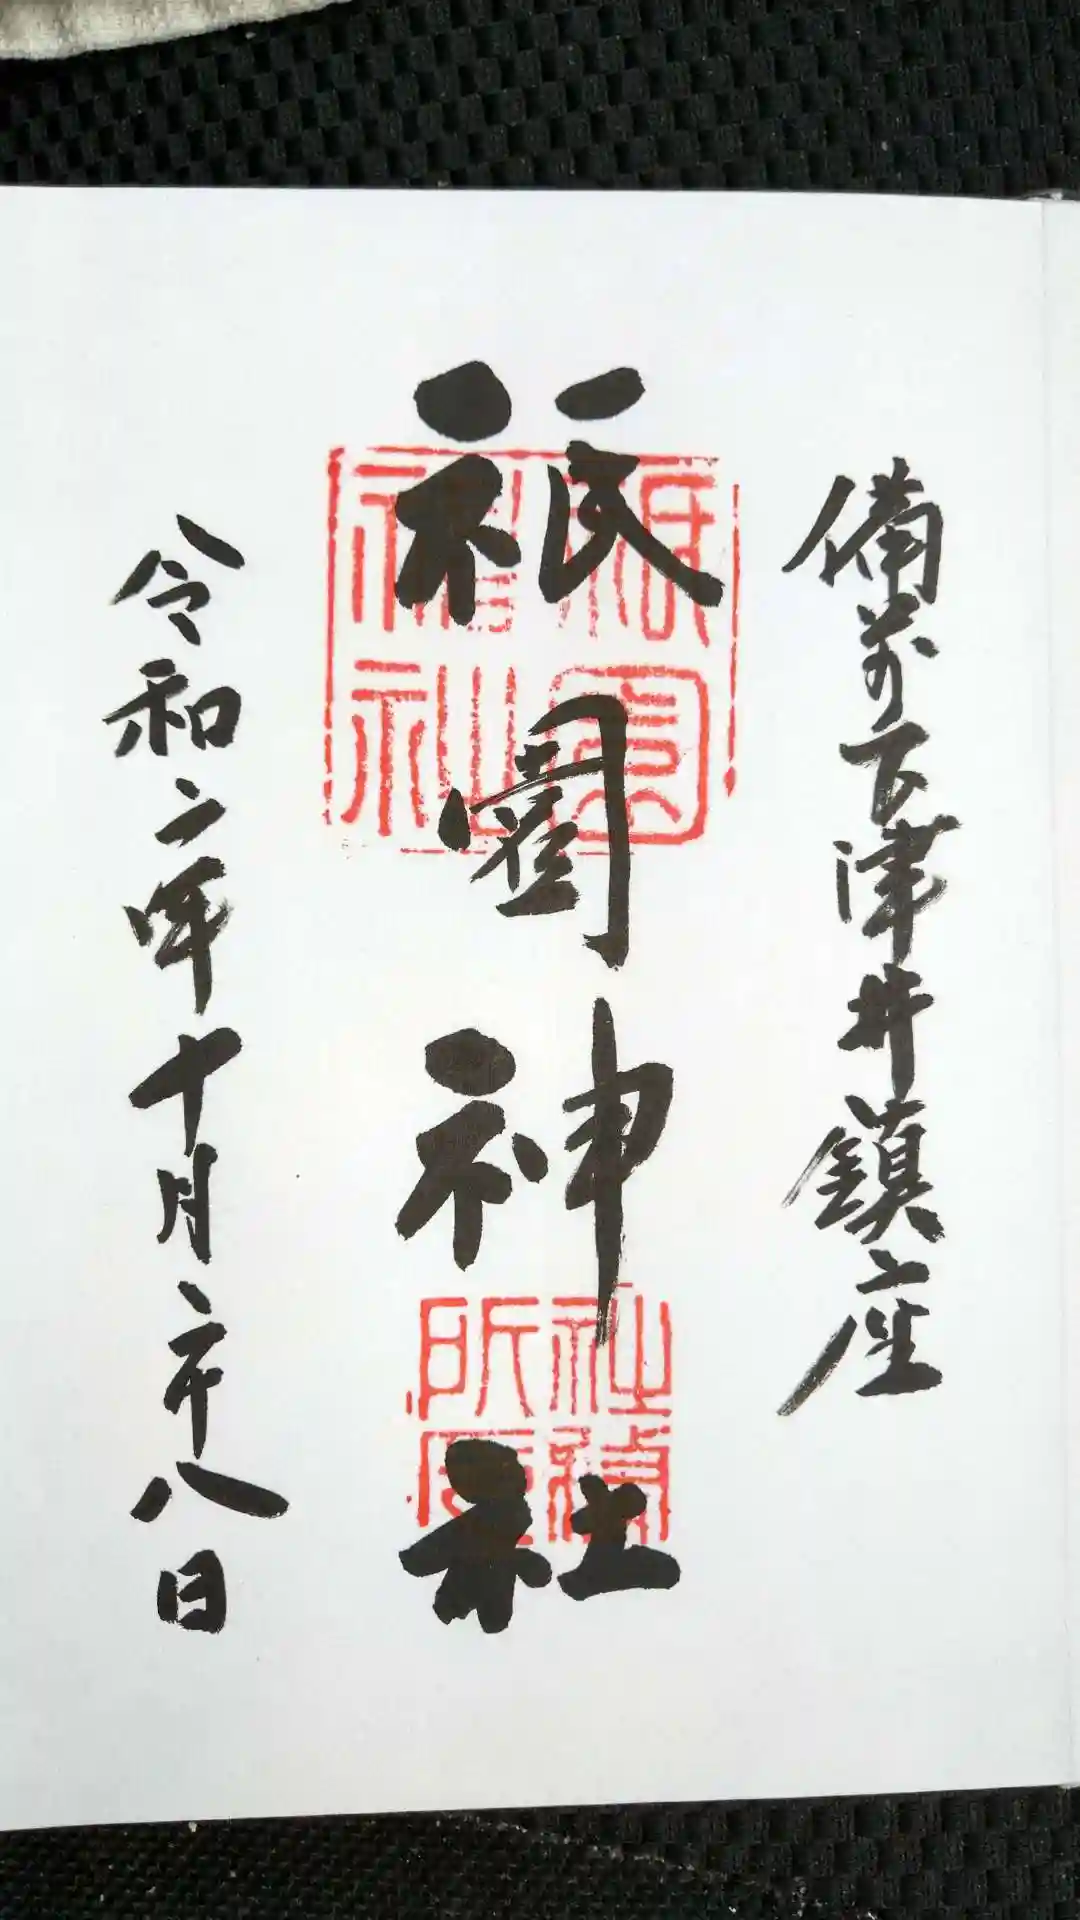 備前下津井鎮座
祇園神社
令和二年十月二十八日
祇園
神社
社務
所印